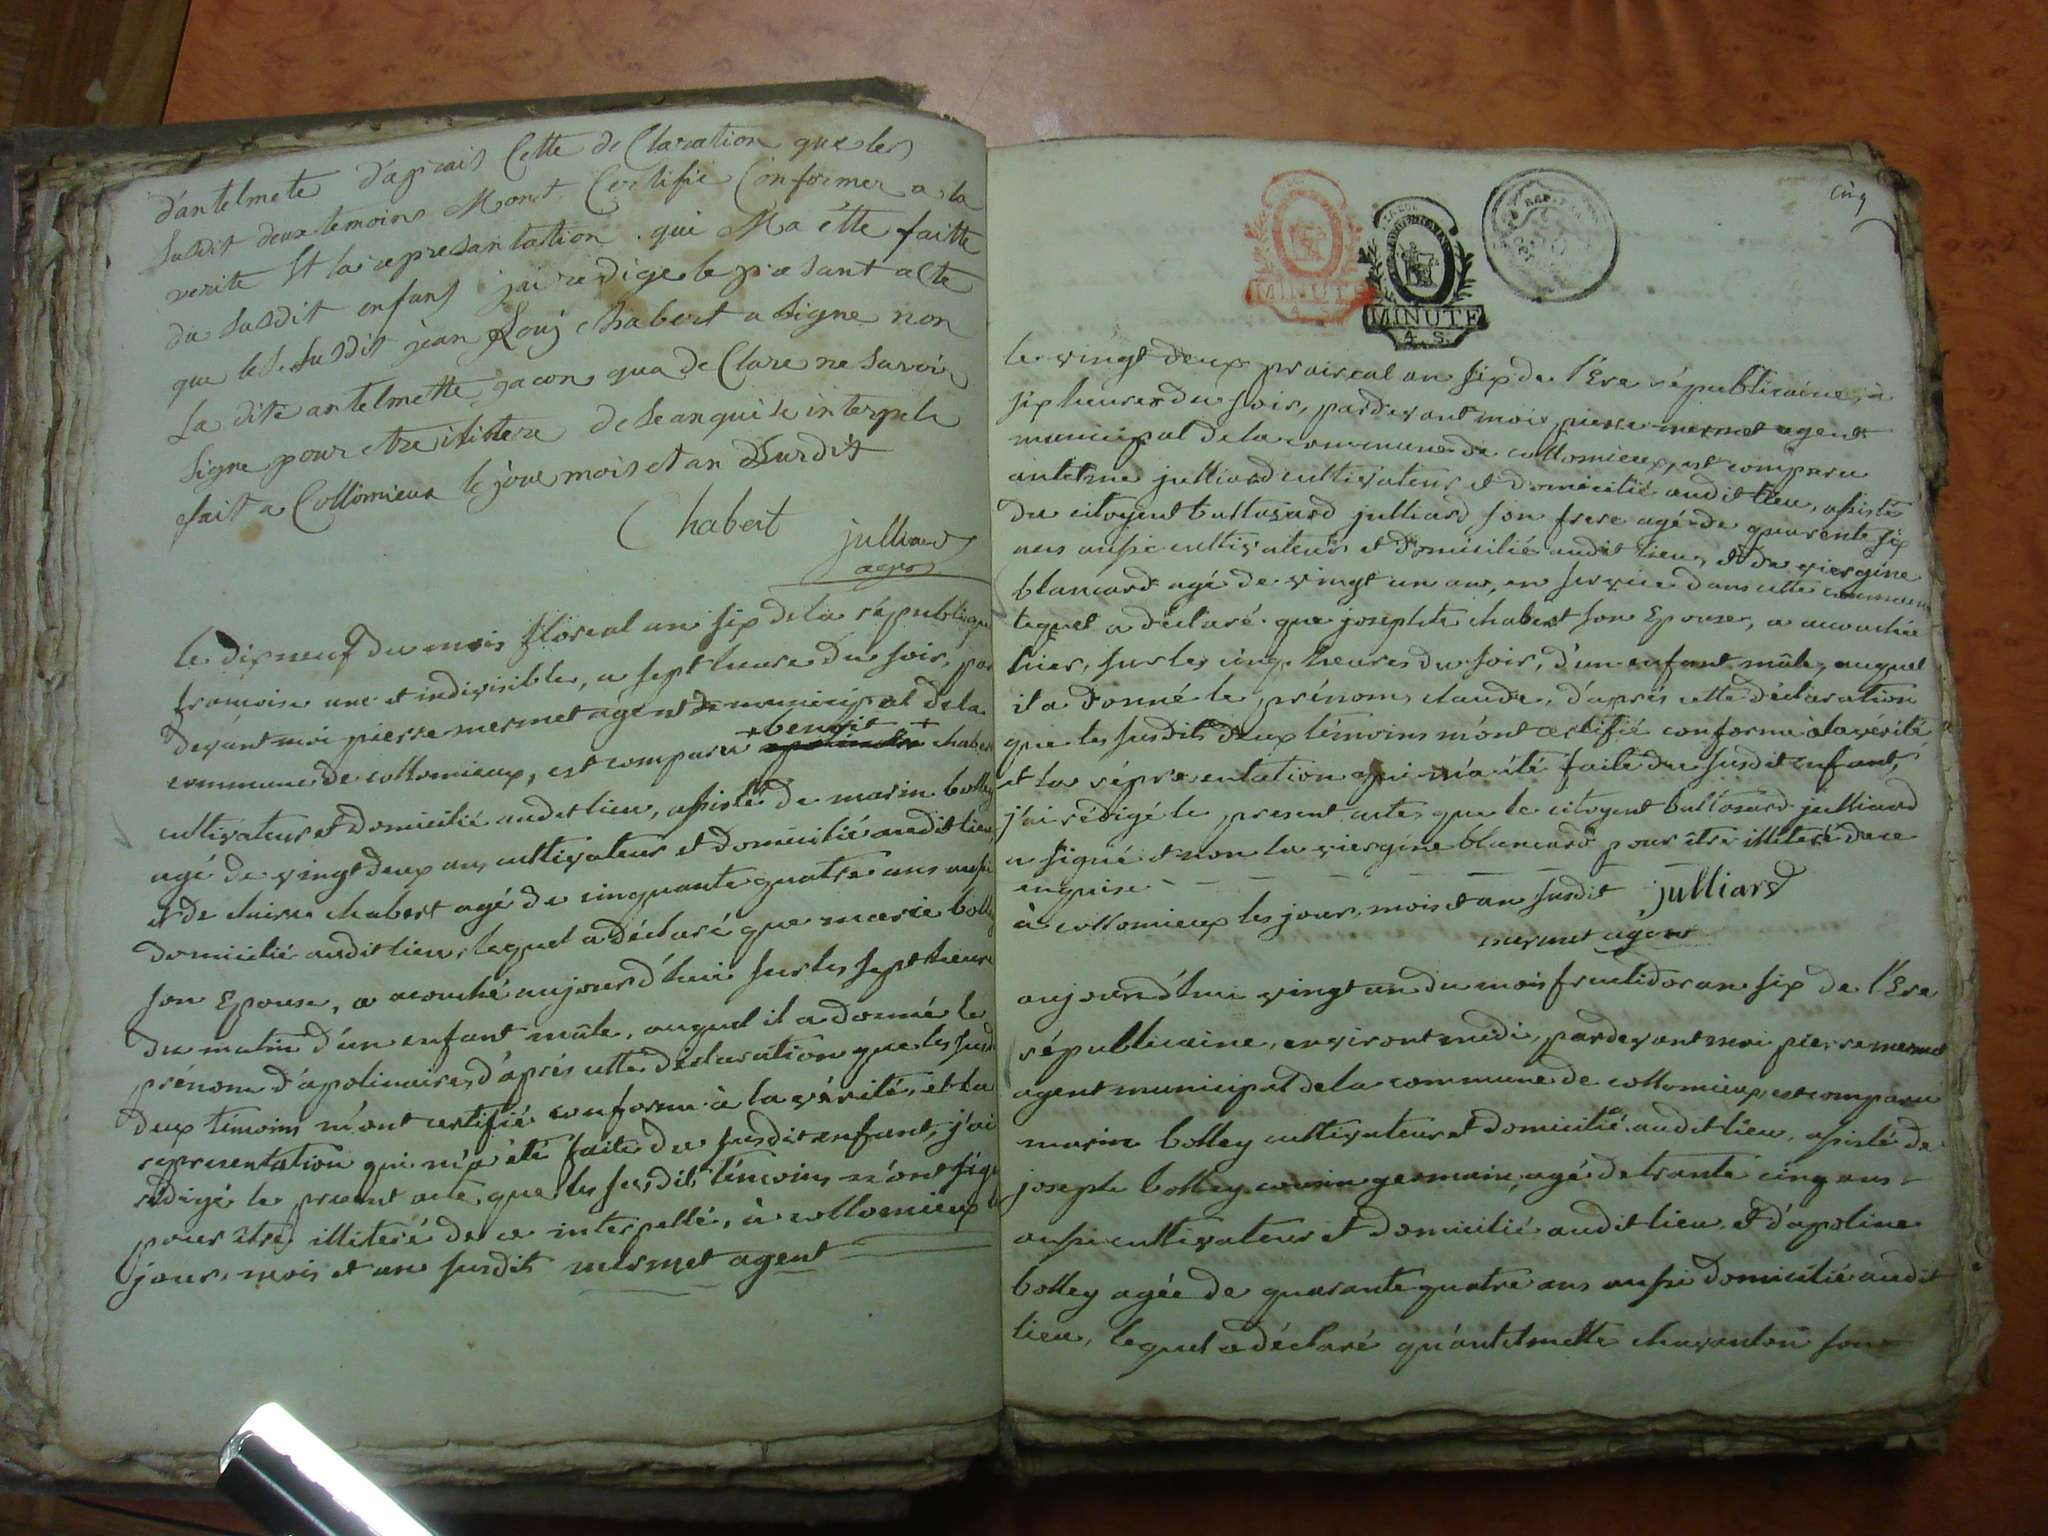 d'antelmete d'aprais Cette deClaration que les
susdit deux temoins Mont Certifie Conformer a la
verite Et la represantation qui Ma étte faitte
du susdit enfans jai redige le presant acte
que le susdit jean Louis chabert a signe non
La dite antelmette gacon qua deClare ne savoir
signe pour etre ilitere de Se anqui Se interpele
fait a Collomieux le jour mois et an Susdit
Chabert julliard
agen
le dixneuf du mois floreal an six de la république
françoise une et indivisible, a sept heure du soir, par
devant moi pierre mermet agent municipal de la
commune de collomieux, est comparu + benoit + chabert
cultivateur et domicilié audit lieu, assisté de marin bolley
agé de vingt deux ans, cultivateur et domicilié audit lieu,
et de chabert agé de cinquante quatre ans aussi
domicilié audit lieu, lequel a déclaré que marie bolley
son Epouse, a acouché aujourd'hui sur les sept heure
du matin d'un enfant mâle, auquel il a donné le
prénom d'apolinaire, d'après cette déclaration que les susdit
deux témoins m'ont certifié conforme à la vérité, et la
representation qui m'a été faite du susdit enfant, j'ai
rédigé le present acte, que les susdits témoins n'ont signé
pour être illiteré de ce interpellé, à collomieux les
jour, mois et an susdits mermet agent
cinq
MINUTE
4. S.
MINUTE
4. S.
REP. FRA
le vingt deux praireal an six de l'Ere républicaine, à
six heures du soir, pardevant moi pierre mermet agent
municipal de la commune de collomieux, est comparu
antelme julliard cultivateur et domicilié audit lieu, assisté
du citoyent baltasard julliard son frere agé de quarente six
ans aussi cultivateur et domicilié audit lieu, et de viergine
blancard agé de vingt un ans, en service dans cette commune
lequel a déclaré que josephte chabert son Epouse, a acouchée
hier, sur les cinq heures du soir, d'un enfant mâle, auquel
il a donné le prénom claude, d'après cette déclaration
que les susdits deux témoins m'ont certifié conforme à la vérité
et la réprésentation qui m'a été faite du susdit enfant,
j'ai rédigé le present acte, que le citoyent baltasard julliard
a signé et non la viergine blancard pour être illiteré de ce
enquise
à collomieux les jour, mois et an susdit julliard
mermet agent
aujourd'hui vingt un du mois fructidor an six de l'Ere
républicaine, environt midi, pardevant moi pierre mermet
agent municipal de la commune de collomieux, est comparu
marin bolley cultivateur et domicilié audit lieu, assisté de
joseph bolley cousin germain, agé de trante cinq ans
aussi cultivateur et domicilié audit lieu et d'apoline
bolley agée de quarante quatre ans aussi domicilié audit
lieu, lequel a déclaré qu'antelmette chavanton son